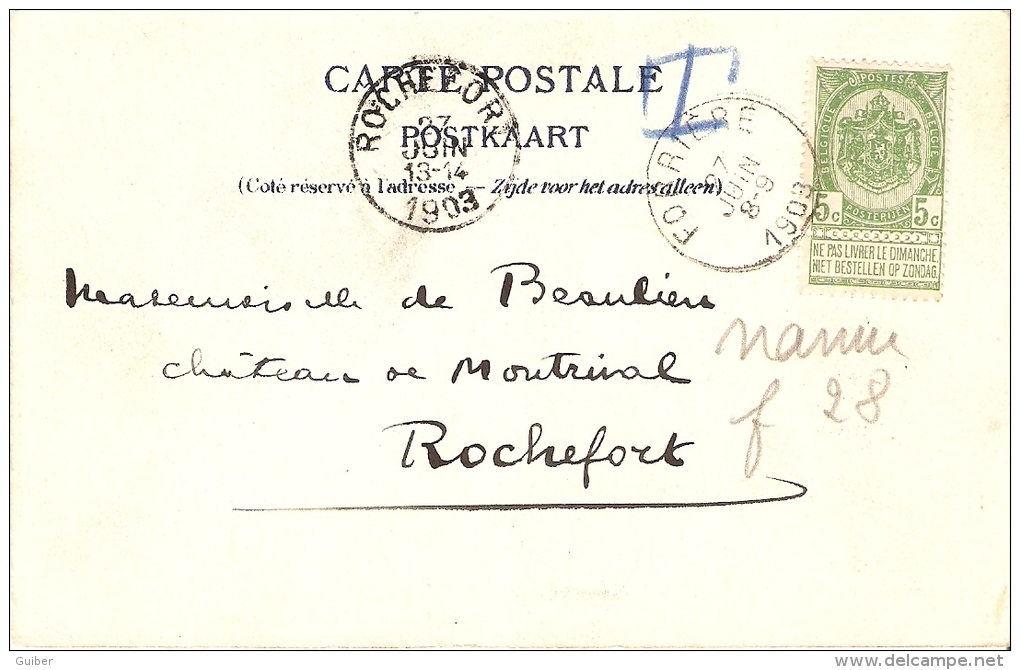 CARTE POSTALE
POSTKAART
(Coté réservé à l'adresse — Zijde voor het adres alleen)
ROCHEFORT
27
JUIN
13-14
1903
T
FORRIÈRE
27
JUIN
8-9
1903
POSTES
BELGIQUE BELGIË
POSTERIJEN
5c 5c
NE PAS LIVRER LE DIMANCHE
NIET BESTELLEN OP ZONDAG.
Mademoiselle de Beaulieu
château de Montrival
Rochefort
Namur
f 28
Guiber
delcampe.net